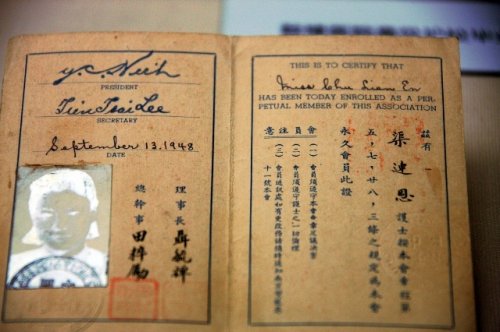 Y. C. Nieh
PRESIDENT
Tien Tsai Lee
SECRETARY
September 13, 1948
DATE
理事長 聶毓禪
總幹事 田粹勵
THIS IS TO CERTIFY THAT
Miss Chu Lian En
HAS BEEN TODAY ENROLLED AS A PER-
PETUAL MEMBER OF THIS ASSOCIATION
茲有
渠連恩 護士按本會會程第
五，七，廿八，三條之規定爲本會
永久會員此證
會員注意
（一）會員須遵守本會會章及議決案
（二）會員須遵守護士之一切倫理
（三）會員通訊處如有更改務請隨時通知南京
十一號本會